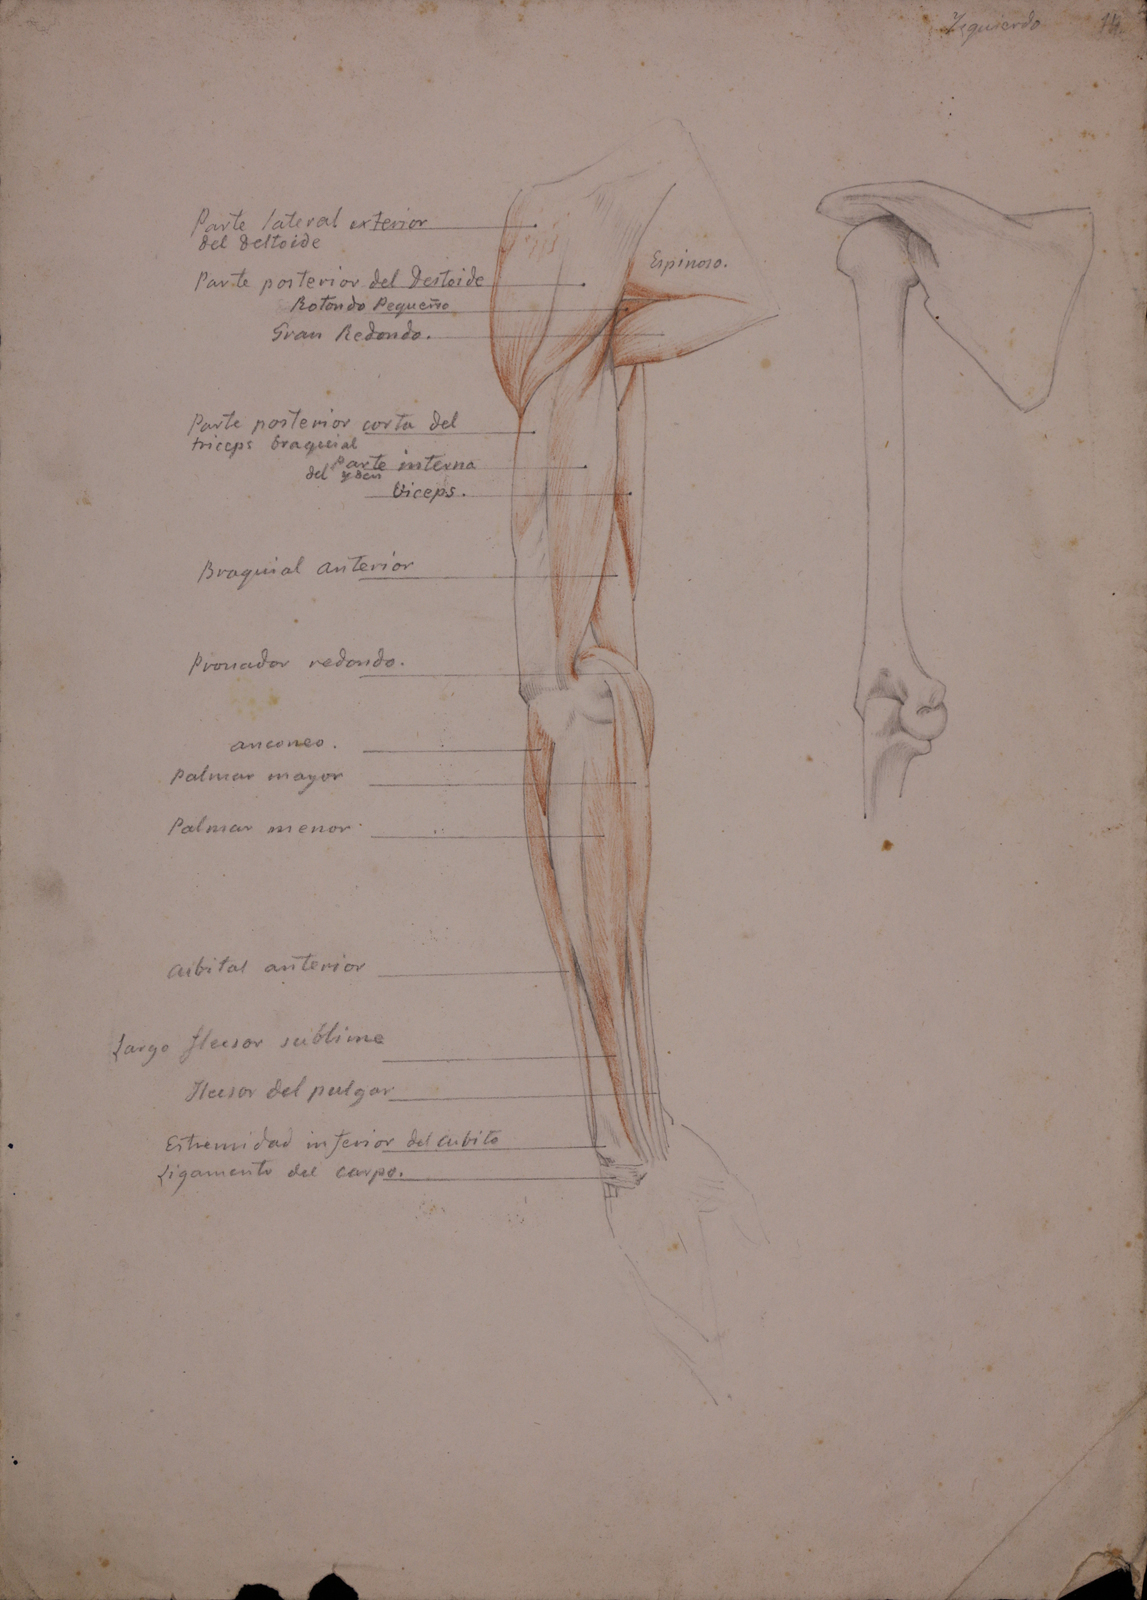 Izquierdo 14
Parte lateral exterior
del deltoide
Espinoso.
Parte posterior del destoide
Rotondo Pequeño
Gran Redondo.
Parte posterior corta del
triceps braquial
Parte interna
del yden
Viceps.
Braquial anterior
Pronador redondo.
anconeo.
Palmar mayor
Palmar menor
cubital anterior
Largo flecsor sublime
flecsor del pulgar
Estremidad inferior del cubito
Ligamento del carpo.